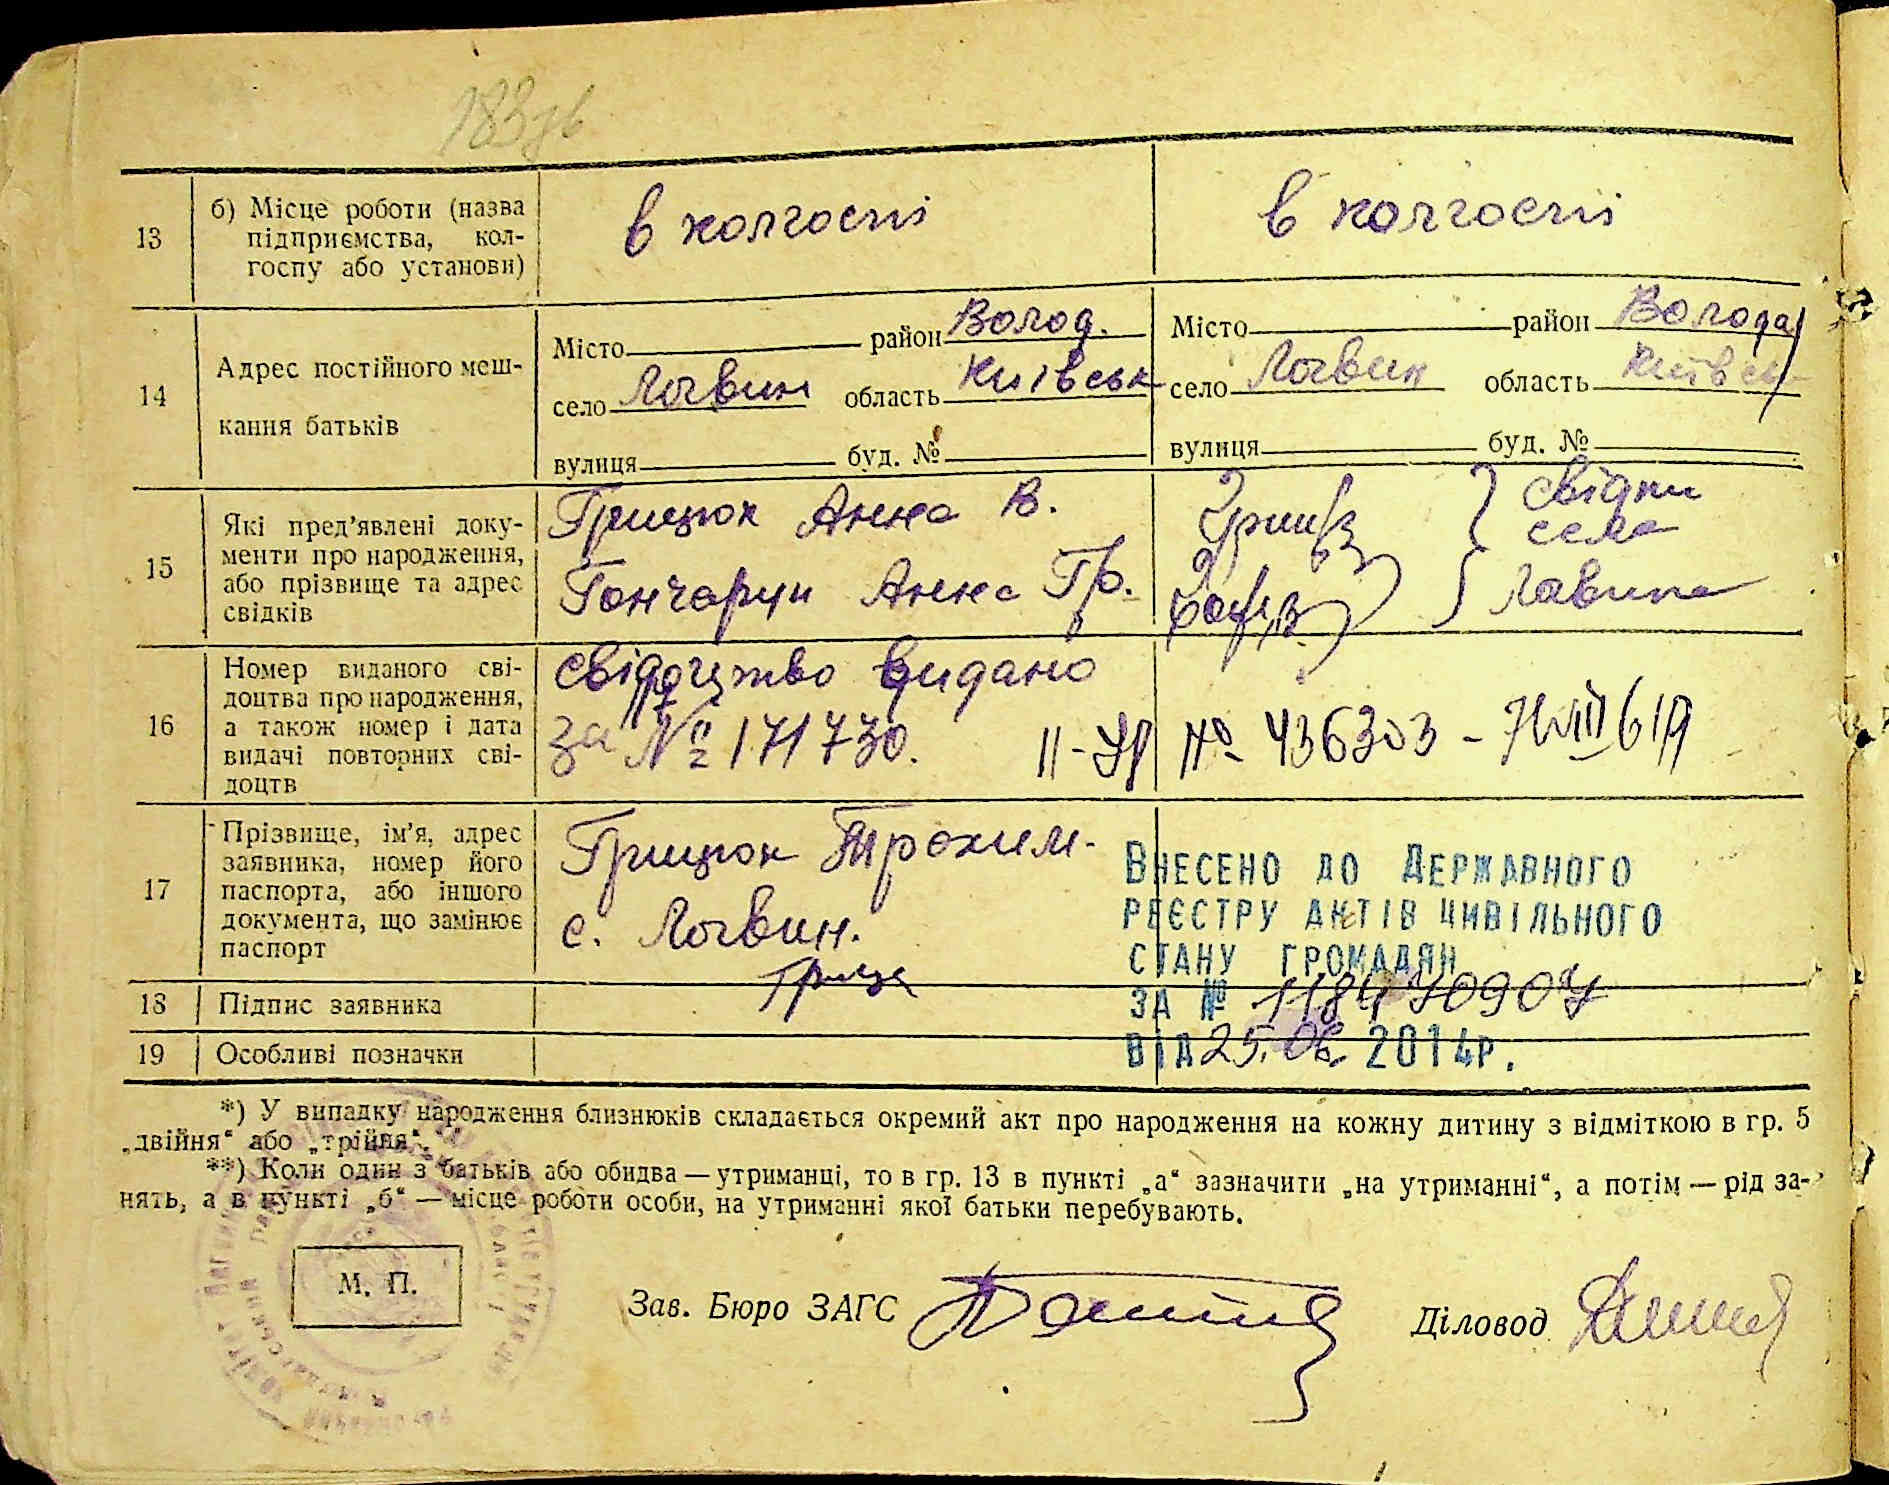 183 зв
13
б) Місце роботи (назва
підприємства, кол-
госпу або установи)
в колгоспі
в колгоспі
14
Адрес постійного меш-
кання батьків
Місто район Волод.
село Логвин область Київськ
вулиця буд. №
Місто район Волода
село Логвин область Київськ
вулиця буд. №
15
Які пред'явлені доку-
менти про народження,
або прізвище та адрес
свідків
Грицюк Анна В.
Гончарук Анна Гр.
свідки
села
Логвина
16
Номер виданого сві-
доцтва про народження,
а також номер і дата
видачі повторних сві-
доцтв
свідоцтво видано
за № 171730.
II-УР № 436303 - 7/VIII 61р
17
Прізвище, ім'я, адрес
заявника, номер його
паспорта, або іншого
документа, що замінює
паспорт
Грицюк Трохим-
с. Логвин.
ВНЕСЕНО ДО ДЕРЖАВНОГО
РЕЄСТРУ АКТІВ ЦИВІЛЬНОГО
СТАНУ ГРОМАДЯН
ЗА №
ВІД 25.06. 2014р.
18
Підпис заявника
19
Особливі позначки
*) У випадку народження близнюків складається окремий акт про народження на кожну дитину з відміткою в гр. 5
„двійня“ або „трійня“.
**) Коли один з батьків або обидва — утриманці, то в гр. 13 в пункті „а“ зазначити „на утриманні“, а потім — рід за-
нять, а в пункті „б“ — місце роботи особи, на утриманні якої батьки перебувають.
М. П.
Зав. Бюро ЗАГС
Діловод